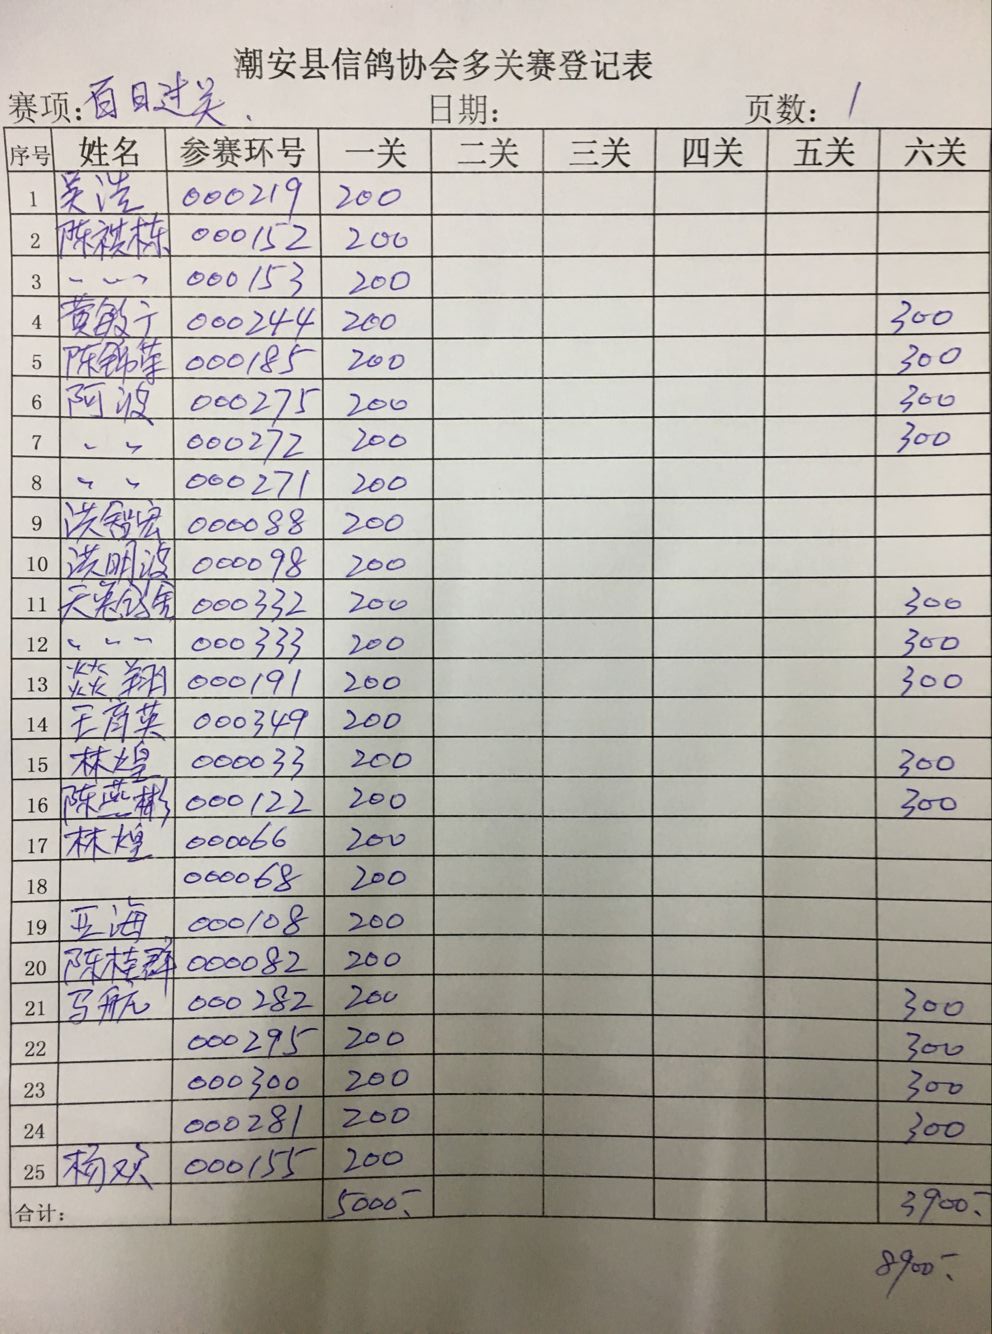 潮安县信鸽协会多关赛登记表
赛项: 百日过关. 日期: 页数: 1
序号 姓名 参赛环号 一关 二关 三关 四关 五关 六关
1 吴浩 000219 200
2 陈祺栋 000152 200
3 〃 〃 〃 000153 200
4 黄敏宁 000244 200 300
5 陈锦荣 000185 200 300
6 阿波 000275 200 300
7 〃 〃 000272 200 300
8 〃 〃 000271 200
9 洪智宏 000088 200
10 洪明波 000098 200
11 000332 200 300
12 〃 〃 〃 000333 200 300
13 燚翔 000191 200 300
14 王育英 000349 200
15 林煌 000033 200 300
16 陈燕彬 000122 200 300
17 林煌 000066 200
18 000068 200
19 亚海 000108 200
20 陈桂群 000082 200
21 马航 000282 200 300
22 000295 200 300
23 000300 200 300
24 000281 200 300
25 杨欢 000155 200
合计: 5000.- 3900.-
8900.-